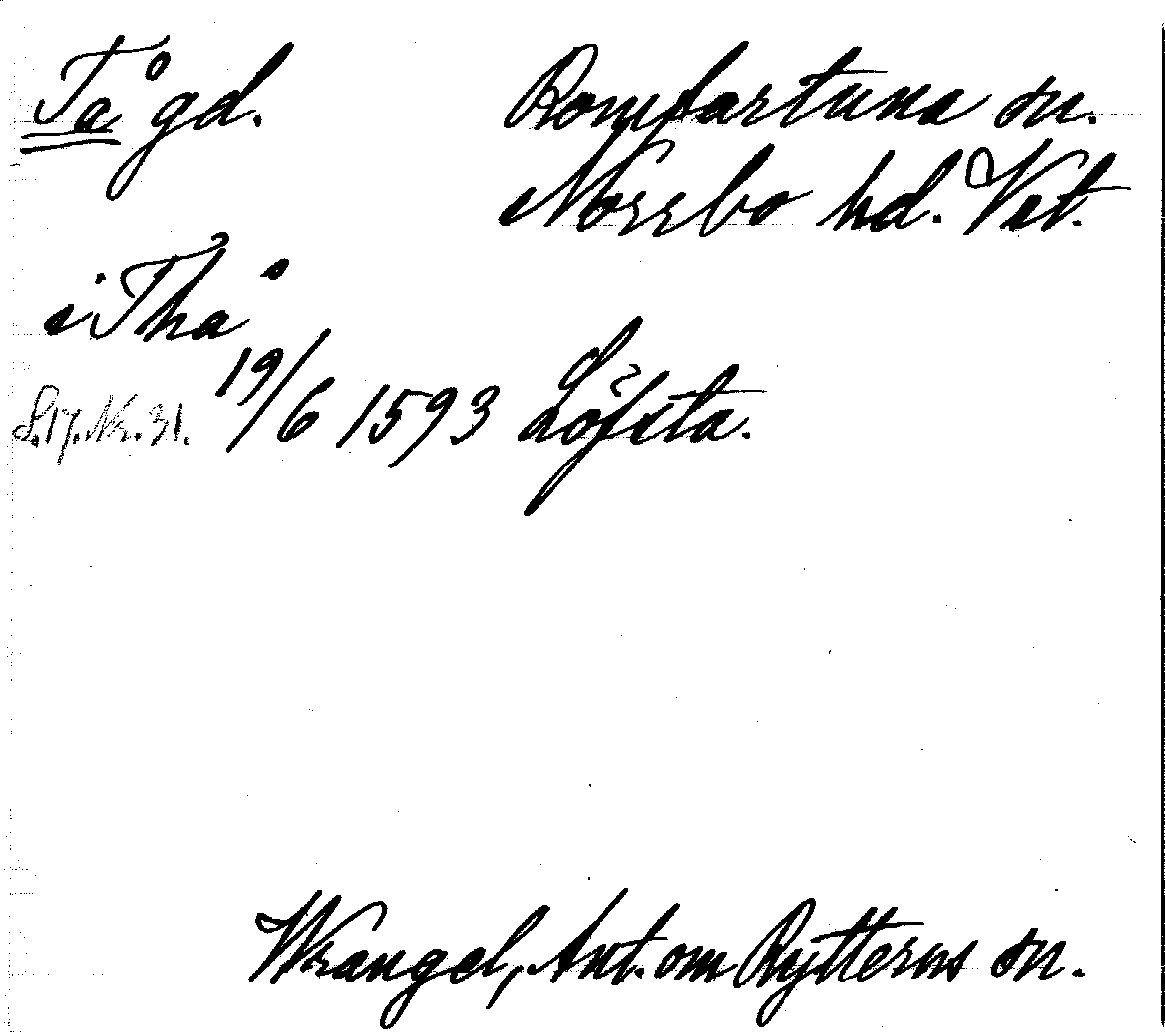 Tå gd. Romfartuna sn.
Norrbo hd. Vst.
i Thå
L. 17. Nr. 31. 19/6 1593 Löfsta.
Wrangel, Ant. om Rytterns sn.